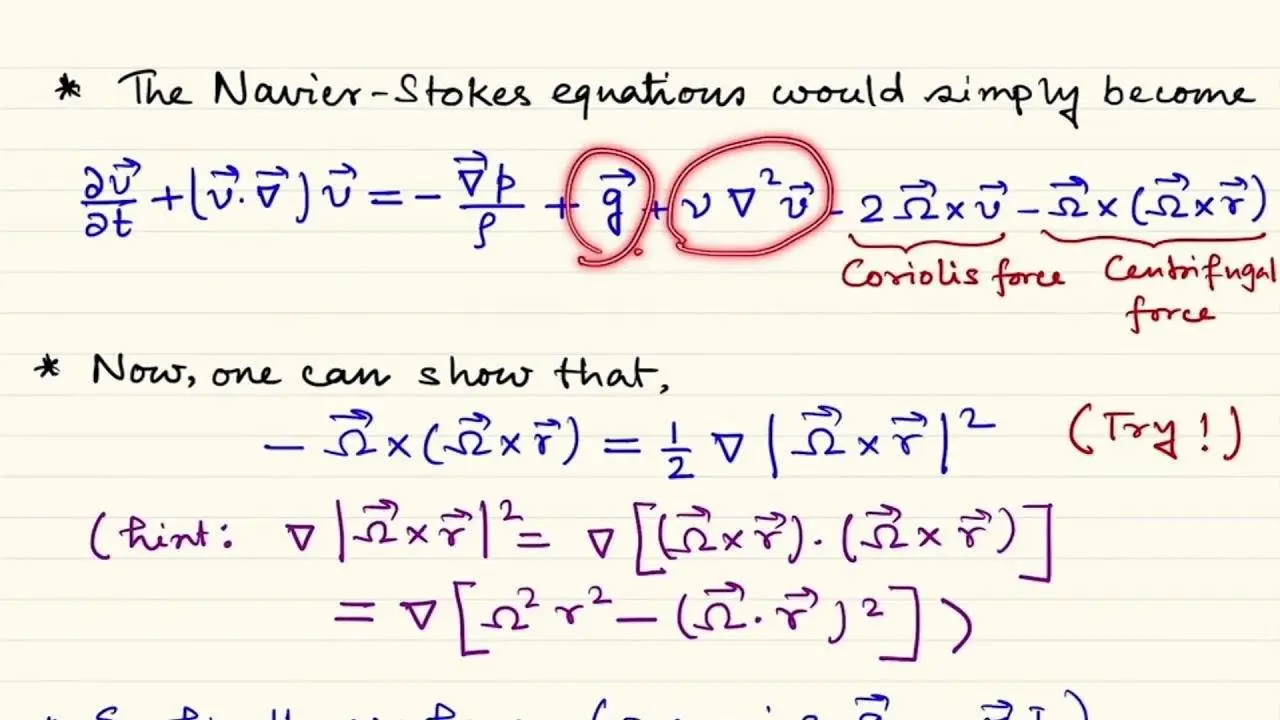 * The Navier-Stokes equations would simply become
∂v⃗/∂t + (v⃗·∇⃗)v⃗ = - ∇⃗p/ρ + g⃗ + ν∇²v⃗ - 2Ω⃗×v⃗ - Ω⃗×(Ω⃗×r⃗)
Coriolis force Centrifugal force
* Now, one can show that,
- Ω⃗×(Ω⃗×r⃗) = 1/2 ∇|Ω⃗×r⃗|² (Try!)
(hint: ∇|Ω⃗×r⃗|² = ∇[(Ω⃗×r⃗)·(Ω⃗×r⃗)]
= ∇[Ω²r² - (Ω⃗·r⃗)²])